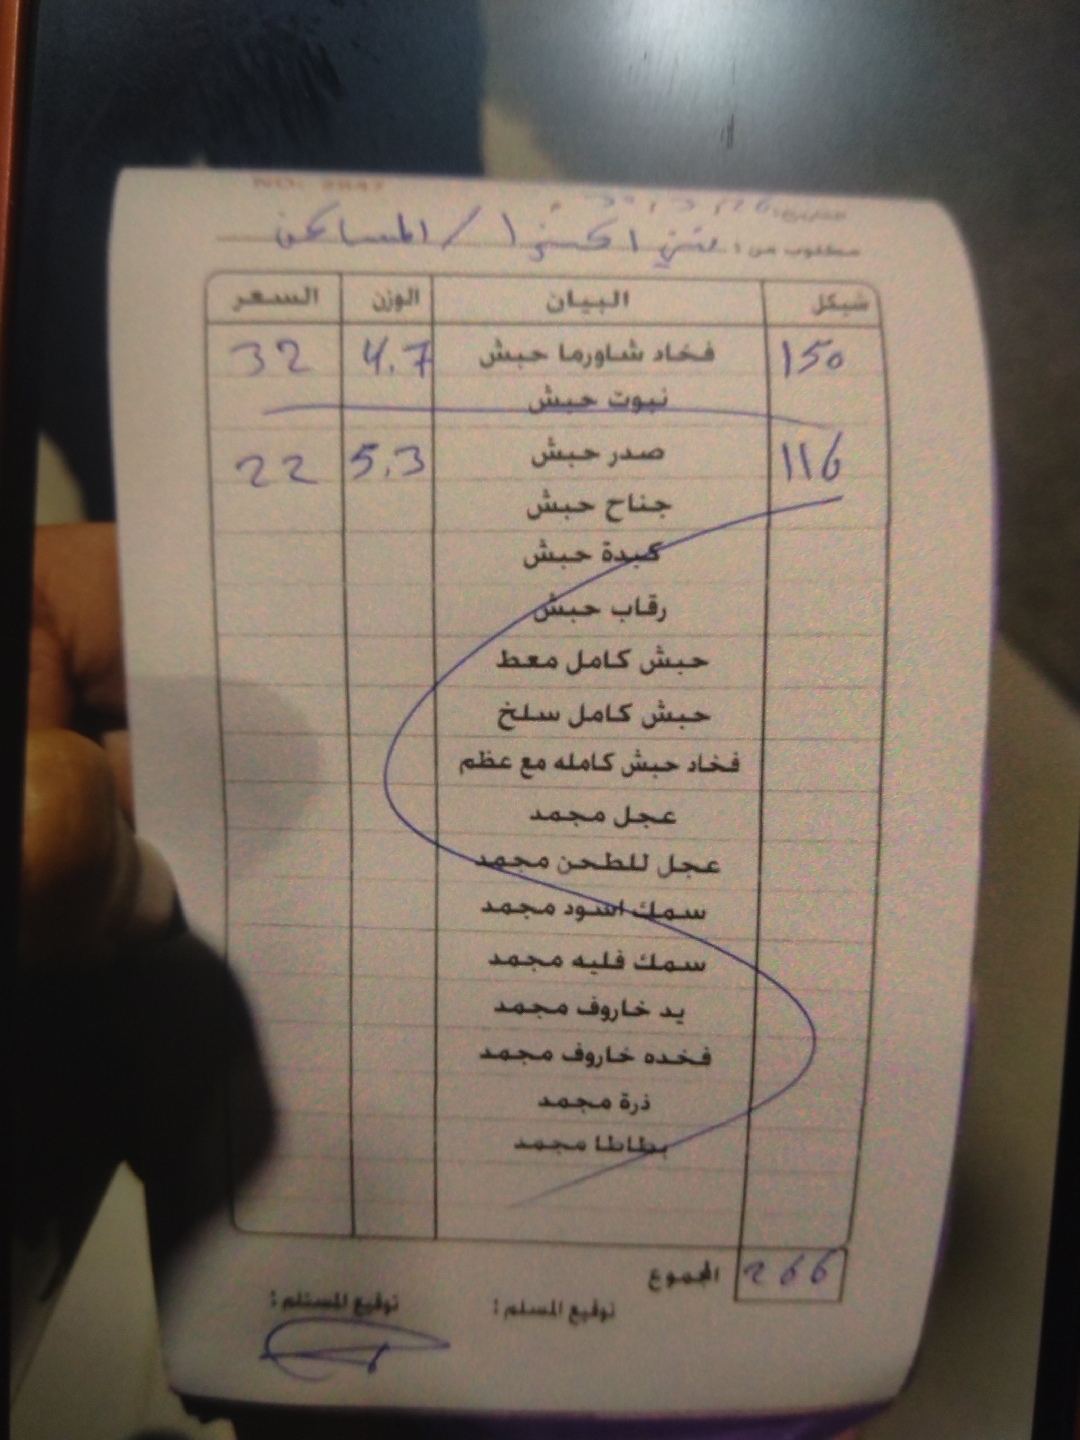 NO. 2847
التاريخ: 30/3/26
مطلوب من: / المساكن
شيكل البيان الوزن السعر
150 فخاد شاورما حبش 4.7 32
نبوت حبش
116 صدر حبش 5.3 22
جناح حبش
كبدة حبش
رقاب حبش
حبش كامل معط
حبش كامل سلخ
فخاد حبش كامله مع عظم
عجل مجمد
عجل للطحن مجمد
سمك اسود مجمد
سمك فليه مجمد
يد خاروف مجمد
فخده خاروف مجمد
ذرة مجمد
بطاطا مجمد
266 المجموع
توقيع المسلم: توقيع المستلم: